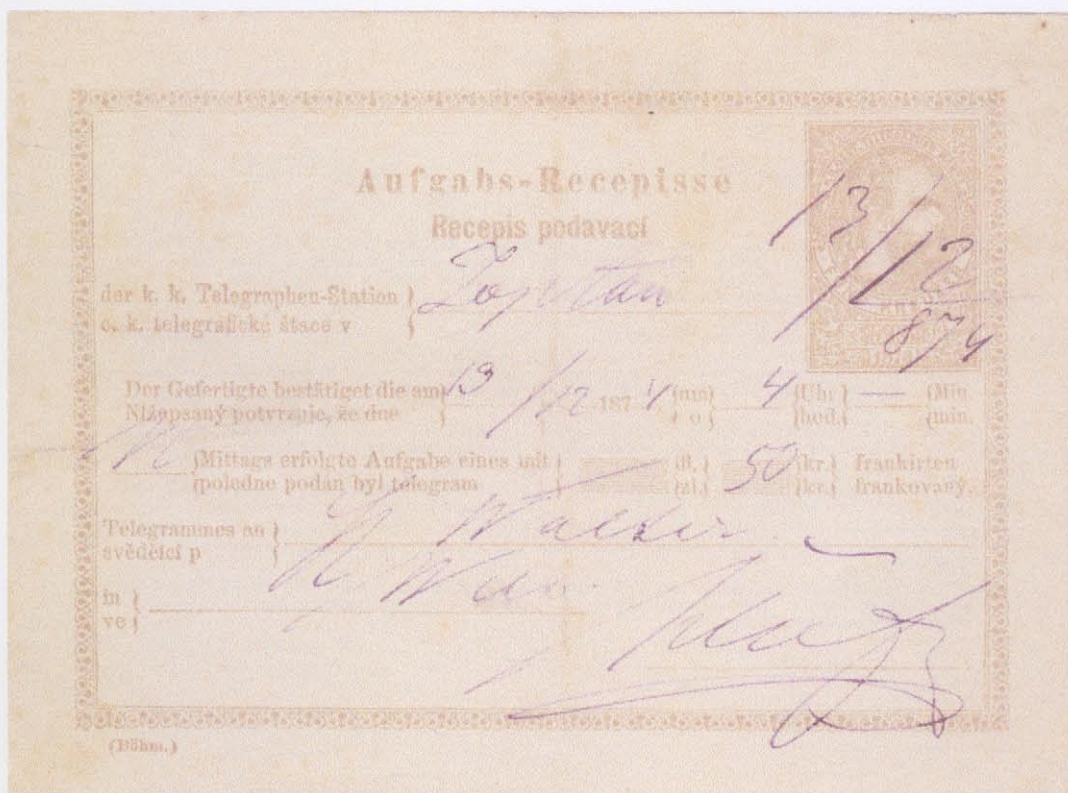 Aufgabs-Recepisse
Recepis podavací
der k. k. Telegraphen-Station
c. k. telegrafické štace v
13/12
874
Der Gefertigte bestätiget die am 13/12 1874 um 4 Uhr — Min.
Nížepsaný potvrzuje, že dne o hod. min.
N Mittags erfolgte Aufgabe eines mit fl. 50 kr. frankirten
poledne podán byl telegram zl. kr. frankovaný.
Telegrammes an Walter
svědčící p
in Wien
ve
(Böhm.)